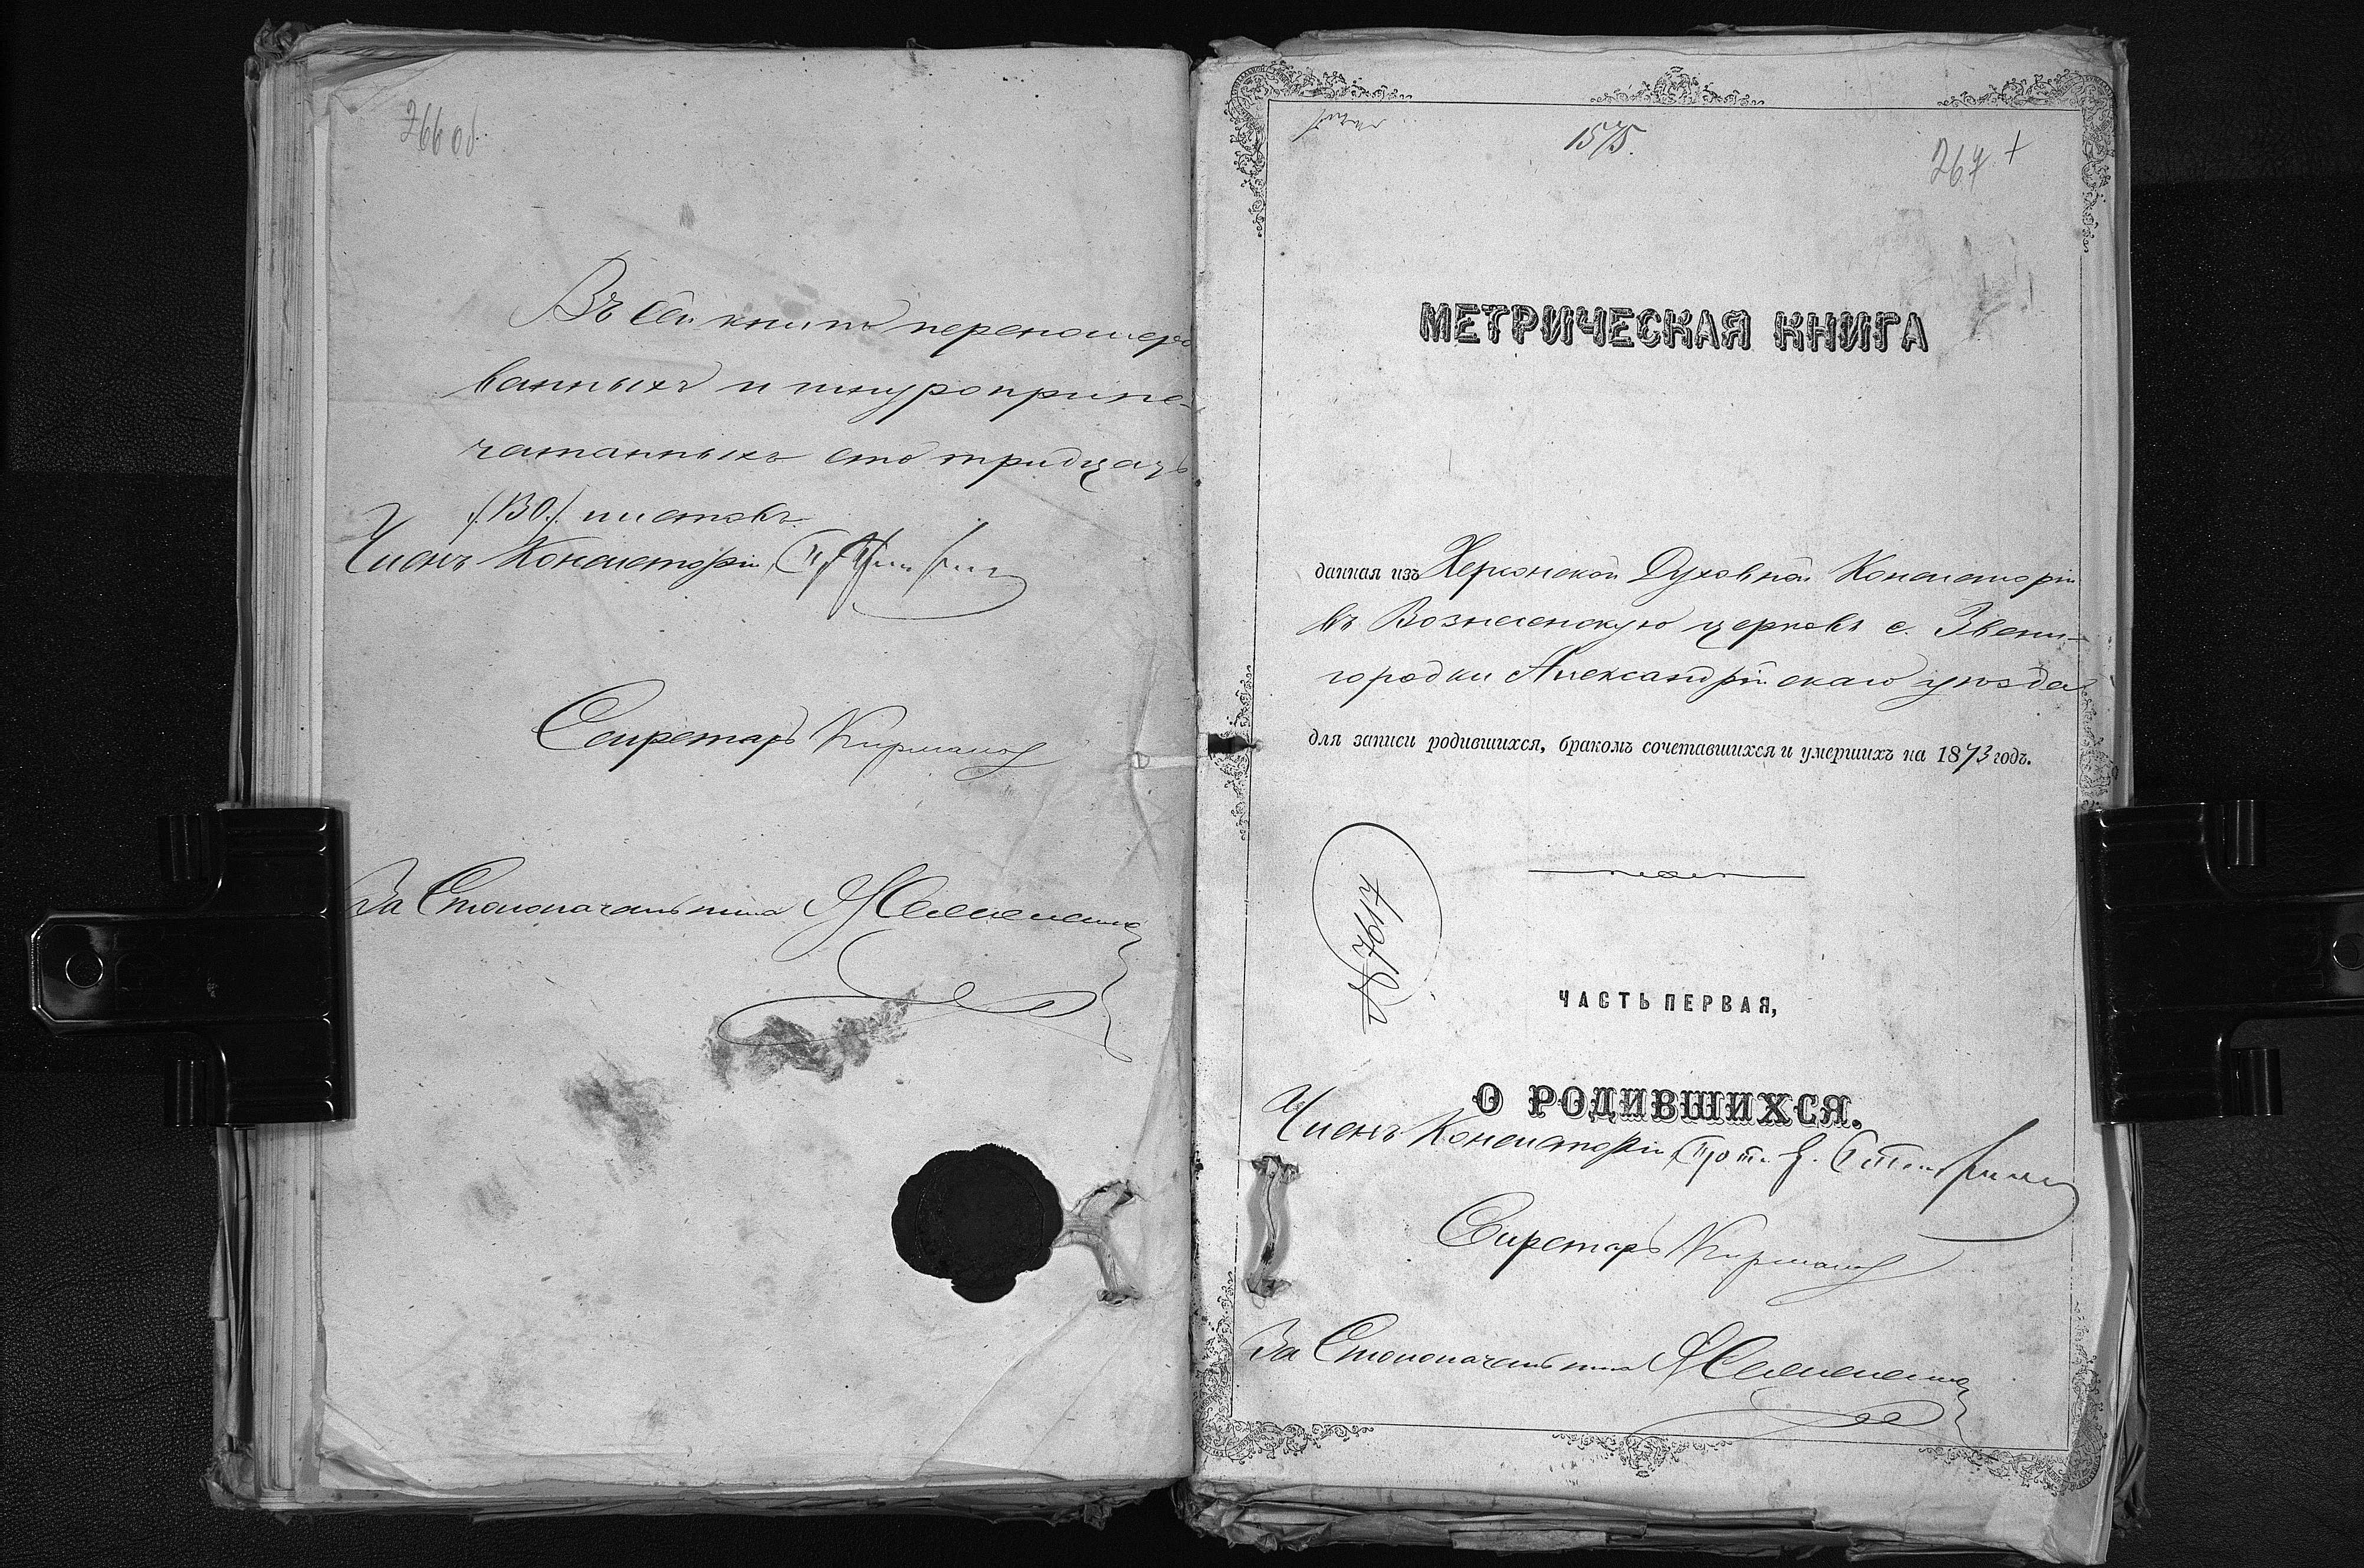 266 об.
Въ сей книгѣ перенумеро
ванныхъ и шнуроприпе-
чатанныхъ сто тридцать
/130./ листовъ
Членъ Консисторіи
Секретарь
За Столоначальника
1575.
267 +
МЕТРИЧЕСКАЯ КНИГА
данная изъ Херсонской Духовной Консисторіи
въ Вознесенскую церковь с. Звени-
городки Александрійскаго уѣзда
для записи родившихся, бракомъ сочетавшихся и умершихъ на 1873 годъ.
№ 7617
ЧАСТЬ ПЕРВАЯ,
О РОДИВШИХСЯ.
Членъ Консисторіи, Прот.
Секретарь
За Столоначальника